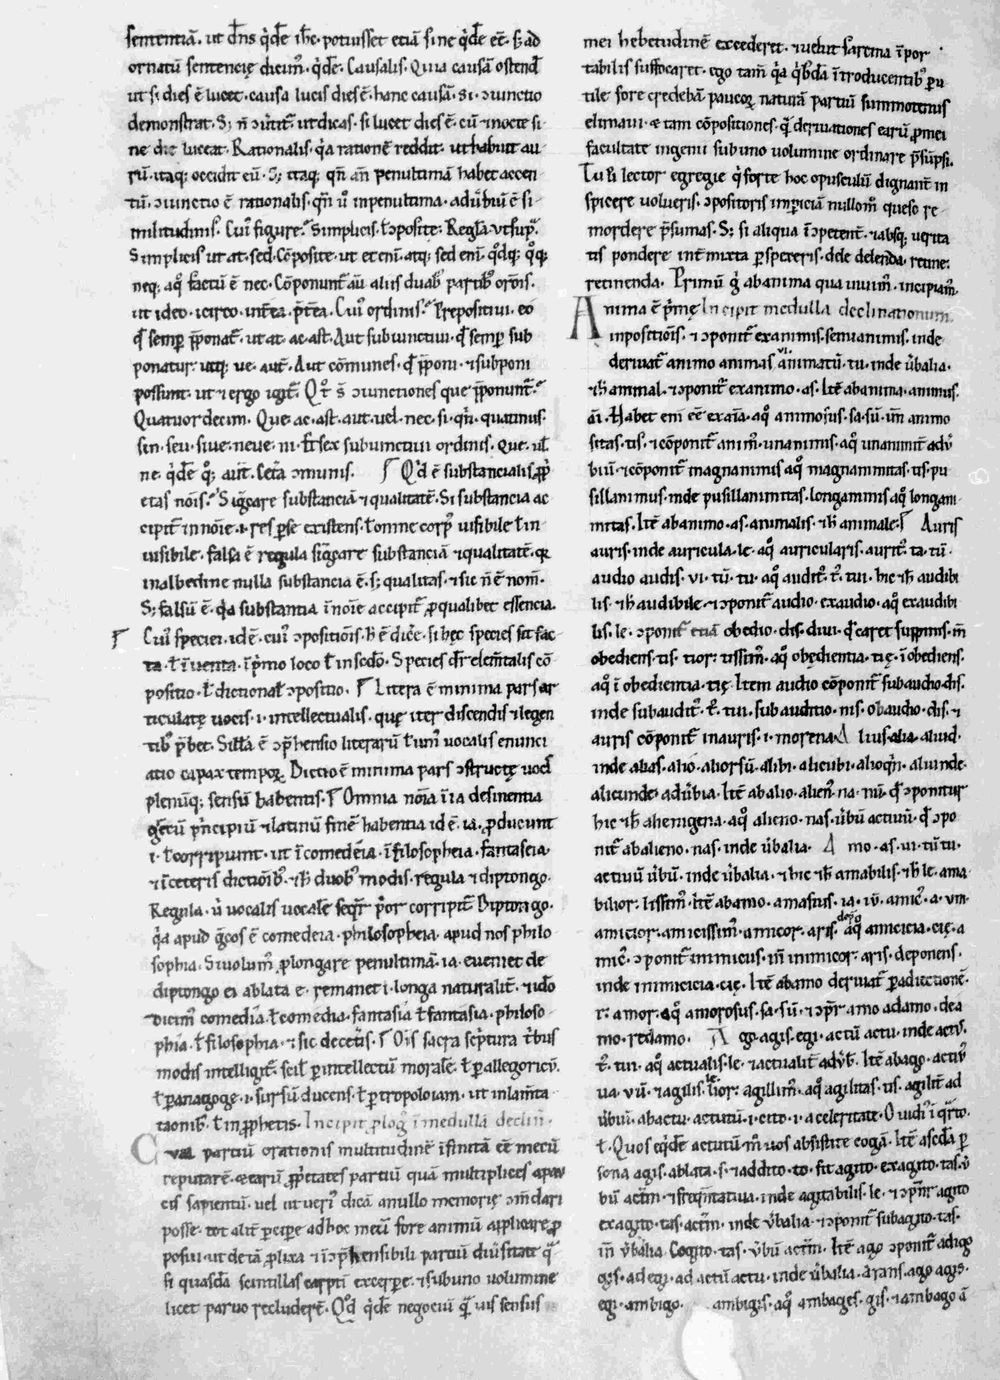 sententiā. ut dn̄s q̇dē ih̄c. potuisset etiā sine q̇dē eē. s; ad
ornatū sententię dicim᷒. q̇dē. Causalis. Quia causā ostend̄
ut si dies ē lucet. causa lucis dies ē. hanc causā. Si. ɔiunctio
demonstrat. S; n̄ ɔůtit᷑. ut dicas. si lucet dies ē. cū ⁊ nocte si
ne die luceat. Rationalis. q̇a rationē reddit. ut habuit au
rū. itaq; occidit eū. S; itaq; qn̄ an̄ penultimā habet accen
tū. ɔiunctio ē rationalis. qn̄ ů in penultima. adůbiū ē si
militudinis. Cui᷒ figure? Simplicis. ł ɔposite. Regła. ut sup᷑.
Simplicis ut at. sed. Cōposite. ut etenī. atq; sed enī. q̇dq; q̊q;
neq; aq̊ factū ē nec. Cōponunt᷑ aū aliis duab᷒ partib᷒ or̄onis.
ut ideo. icirco. int̄ea. p̄t̄ea. Cui᷒ ordinis? Prepositiui. eo
q̄d semp̱ p̄ponat᷑. ut at. ac. ast. Aut subiunctiui. q̄d semp̱ sub
ponatur. utq; ue. aut̄. Aut comunes. q̄d p̄poni. ⁊ subponi
possunt. ut ⁊ ergo igit᷑. Qo᷑t s̄ ɔiunctiones que p̄ponunt᷑?
Quatuordecim. Que. ac. ast. aut. uel. nec. si. qn̄. quatinus.
sin. seu. siue. neue. ni. Et̄ sex subiunctiui ordinis. Que. ul̄.
ne. q̇dē q̊; aut̄. Cet̄a ɔmunis. Q̇d ē substancialis ꝓp̄
etas nōis? Sig̅care substanciā ⁊ qualitatē. Si substancia ac
cipit᷑ in nōie. ⁊. res p̱se existens. ł omne corp᷒ uisibile ł in
uisibile. falsa ē regula sig̅care substanciā ⁊ qualitatē. q̄
in albedine nulla substancia ē. s; qualitas. ⁊ sic n̄ ē nom̄.
S; falsū ē. q̇a substantia ī nōie accipit᷑ ꝓ qualibet essencia.
Cui᷒ speciei. id ē. cui᷒ ɔpositiōis. h̄ ē dic̄e. si hęc species sit fac
ta. ł īuenta. ī p̄mo loco ł in sc̄do. Species dr̄ elem̄talis cō
positio. ł dictional᷒ ɔpositio. Litera ē minima pars ar
ticulatę uocis. ⁊. intellectualis. quę iter discendis ⁊ legen
tib᷒ p̄bet. Sill̄a ē ɔp̄hensio literarū ł uni᷒ uocalis enunci
atio capax tempoꝝ. Dictio ē minima pars ɔstructę uocis
plenūq; sensū habentis. Omnia nōia ī ia desinentia
gr̄ecū p̄ncipiū ⁊ latinū finē habentia id ē. ia. ꝓducunt
⁊. ł corripiunt. ut ī comedeia. ī filosopheia. fantaseia.
⁊ ī ceteris dictiōib᷒. ⁊ h̄ duob᷒ modis. regula ⁊ diptongo.
Regula. ů uocalis uocalē seq̄r. p̄or corripit᷑. Diptongo.
q̇a apud gr̄cos ē comedeia. philosopheia. apud nos philo
sophia. Si uolum᷒ ꝓlongare penultimā. ia. eueniet de
diptongo ei ablata e. remanet i. longa naturalit̄. ⁊ id̄o
dicim᷒ comedia. ł comedia. fantasia ł fantasia. philoso
phia. ł filosophia. ⁊ sic de cet̄is. Om̄is sacra sc̄ptura t̄bus
modis intelligit᷑. scil̄ p̱ intellectū moralē. ł p̱ allegoricū.
ł p̱ anagogē. ⁊. sursū ducens. ł p̱ tropoloiam. ut in lam̄ta
tionib᷒. ł in ꝓphetis. Incipit ꝓlog᷒ ī medullā declin̄.
Cum partiū orationis multitudinē īfinitā eē mecū
reputarē. ⁊ earū ꝓp̄etates partiū quā multiplices apu
eis sapientū. uel ut ueri᷒ dicā a nullo memorię ɔm̄dari
posse. tot alit̄ p̱cip̱e ad hoc meū fore animū applicare p̱
posui. ut de tā ꝓlixa ⁊ īɔp̄hensibili partiū diůsitate q̄
si quasdā scintillas carptī excerp̱e. ⁊ sub uno uolumine
licet paruo recluderē. Q̊d q̇dē negociū q̄uis sensus
mei hebetudinē excederet. ⁊ uelut sarcina īpor
tabilis suffocaret. ego tam̄ q̇a q̇b᷒dā ītroducentib᷒ p̱u
tile fore credebā paucoꝝ naturā partiū summotenus
elimaui. ⁊ tam cōpositiones. q̄ deriuationes earū ꝓ mei
facultate ingenii sub uno uolumine ordinare p̄supsi.
Tu ḡ lector egregie q̇ forte hoc opusculū dignant̄ in
spicere uolueris. ɔpositoris imp̱iciā nullom̄ queso re
mordere p̄sumas. S; si aliqua īɔpetent᷑. ⁊ absq; uerita
tis pondere int̄mixta p̱spexeris. dele delenda. retine
retinenda. Primū ḡ ab anima qua uiuim᷒. incipiam᷒.
Anima ē p̄mę Incipit medulla declinationum
inpositiōis. ⁊ ɔponit᷑ exanimis. semianimis. inde
deriuat᷑ animo animas ui animatū. tu. inde ůbalia.
⁊ h̄ animal. ⁊ ɔponit᷑ exanimo. as. Itē ab anima. animus.
ai. Habet enī eē exaīa. aq̊ animosus. sa. sū. un̄ animo
sitas. tis. ⁊ cōponit᷑ anim᷒. unanimis. aq̊ unanimit̄ adů
biū. ⁊ cōponit᷑ magnanimis aq̊ magnanimitas. tis. pu
sillanimus. inde pusillanimitas. longanimis aq̊ longani
mitas. Itē ab animo. as. animalis. ⁊ h̄ animale. Auris
auris. inde auricula. le. aq̊ auricularis. aurit᷒. ta. tū.
audio audis. ui. tū. tu. aq̊ audit᷒. t᷒. tui. hic ⁊ h̄ audibi
lis. ⁊ h̄ audibile. ⁊ ɔponit᷑ audio. exaudio. aq̊ exaudibi
lis. le. ɔponit᷑ etiā obedio. dis. diui. q̄d caret suppinis. īn
obediens. tis. tior. tissim᷒. aq̊ obędientia. tię. ī obediens.
aq̊ ī obedientia. tię. Item audio cōponit᷑ subaudio. dis.
inde subaudit᷒. t᷒. tui. subauditio. nis. obaudio. dis. ⁊
auris cōponit᷑ inauris. ⁊. morena. Alius. alia. aliud.
inde alias. alio. aliorsū. alibi. alicubi. alioq̇n. aliunde.
alicunde. adůbia. Itē ab alio. alien᷒. na. nū. q̄d ɔponitur
hic ⁊ h̄ alienigena. aq̊ alieno. nas. ůbū actiuū. q̄d ɔpo
nit᷑ abalieno. nas. inde ůbalia. Amo. as. ui. tū. tu.
actiuū ůbū. inde ůbalia. ⁊ hic ⁊ h̄ amabilis. ⁊ h̄ le. ama
bilior. lissim᷒. Itē ab amo. amasius. ia. iū. amic᷒. a. um.
amicior. amicissim᷒. amicor. aris. depo aq̊ amicicia. cię. a
mic᷒. ɔponit᷑ inimicus. un̄ inimicor. aris. deponens.
inde inimicicia. cię. Itē ab amo deriuat᷑ p̱ adiectionē.
r. amor. aq̊ amorosus. sa. sū. ⁊ ɔpr̄ amo adamo. dea
mo. redamo. Ago. agis. egi. actū actu. inde act᷒.
t᷒. tui. aq̊ actualis. le. ⁊ actualit̄ adůb̄. Itē ab ago. actiů
ua. uū. ⁊ agilis. le lior. agillim᷒. aq̊ agilitas. tis. agilit̄ ad
ůbiū. ab actu. actutū. ⁊. cito. ⁊. a celeritate. Ouidi᷒ ī q̇rto.
ł. Quos eq̇dē actutū. m̄ uos absistite cogā. Itē a secd̄a p̱
sona agis. ablata. s. ⁊ addito. to. fit agito. exagito. tas. ů
bū act̄m. ⁊ freq̄ntatiua. inde agitabilis. le. ⁊ ɔpr̄ agito
exagito. tas. act̄m. inde ůbalia. ⁊ ɔponit᷑ subagito. tas.
un̄ ůbalia. Cogito. tas. ůbū act̄m. Itē ago ɔponit᷑ adigo
gis. adegi. adactū actu. inde ůbalia. Arans. ago agis.
egi. ambigo. ambigis. aq̊ ambages. gis. ⁊ ambago ā